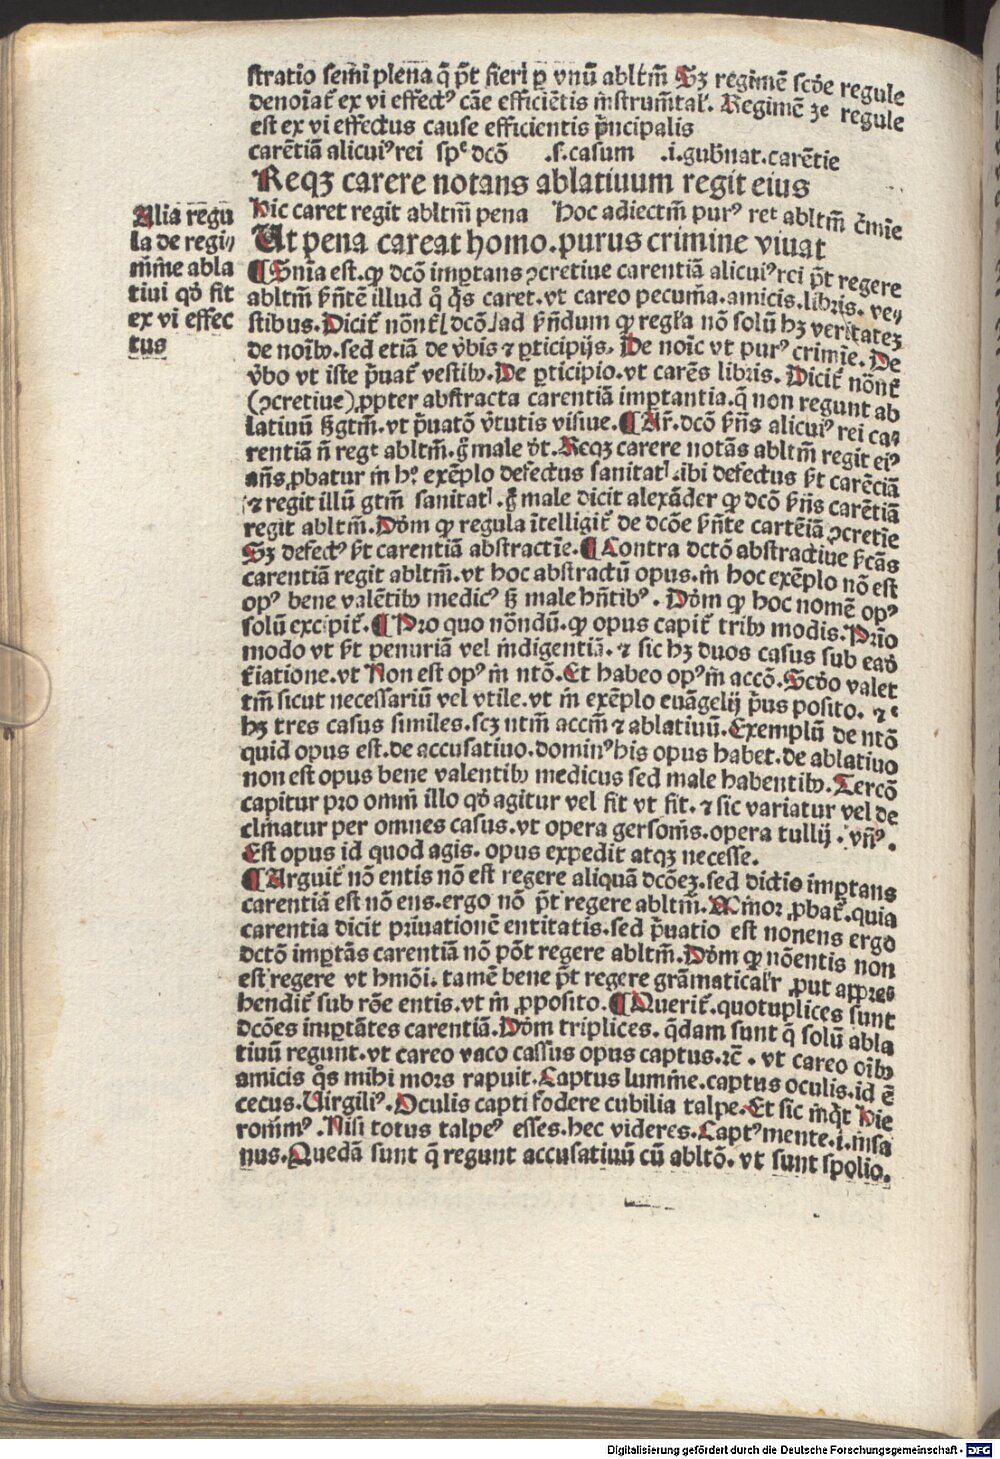 stratio semi plena q̄ p̄t fieri ꝑ vnū abltm̄ Sꝫ regimē scd̄e regule
denoīat̄ ex vi effectꝰ cāe efficiētis instrum̄tal'. Regimē ꝫe regule
est ex vi effectus cause efficientis p̄ncipalis
carētiā alicuiꝰ rei spe dcō .s. casum .i. gubnat. carētie
Reqꝫ carere notans ablatiuum regit eius
Alia regu
la de regi
mine abla
tiui qd̄ fit
ex vi effec
tus
Hic caret regit abltm̄ pena Hoc adiectm̄ purꝰ ret abltm̄ c̄mīe
Ut pena careat homo. purus crimine viuat
¶ Snīa est. ꝙ dcō imꝑtans ꝯcretiue carentiā alicuiꝰ rei p̄t regere
abltm̄ sn̄tē illud q̊ q̄s caret. vt careo pecunia. amicis. libris. ve
stibus. Dicit̄ nōnt̄ dcō ad sn̄dum ꝙ regl'a nō solū hꝫ veritatez
de noībꝫ. sed etiā de v̄bis ⁊ ꝑticipijs. De noīe vt purꝰ crimīe. De
v̄bo vt iste p̄uat̄ vestibꝫ. De ꝑticipio. vt carēs libris. Dicit̄ nōnt̄
(ꝯcretiue) ꝓpter abstracta carentiā imꝑtantia. q̄ non regunt ab
latiuū sꝫ gtm̄. vt p̄uatō v̄tutis visiue. ¶ Ar̄. dcō sn̄s alicuiꝰ rei ca
rentiā n̄ regt abltm̄. g̊ male dr̄. Reqꝫ carere notās abltm̄ regit eiꝰ
an̄s ꝓbatur in hꝰ exēplo defectus sanitatꝭ. ibi defectus st̄ carēciā
⁊ regit illū gtm̄ sanitatꝭ. g̊ male dicit alexāder ꝙ dcō sn̄s carētiā
regit abltm̄. Dōm ꝙ regula ītelligit̄ de dcōe sn̄te cartēiā ꝯcretīe
Sꝫ defectꝰ st̄ carentiā abstractīe. ¶ Contra dctō abstractiue sn̄cās
carentiā regit abltm̄. vt hoc abstractū opus. in hoc exēplo nō est
opꝰ bene valētibꝫ medicꝰ sꝫ male hn̄tibꝰ. Dōm ꝙ hoc nomē opꝰ
solū excipit̄. ¶ Pro quo nōndū. ꝙ opus capit̄ tribꝫ modis. Prīo
modo vt st̄ penuriā vel indigentiā. ⁊ sic hꝫ duos casus sub ead̄
s̄iatione. vt Non est opꝰ in ntō. Et habeo opꝰ in accō. Scd̄o valet
tm̄ sicut necessariū vel vtile. vt in exēplo euāgelij p̄us posito. ⁊
hꝫ tres casus similes. scꝫ ntm̄ accm̄ ⁊ ablatiuū. Exemplū de ntō
quid opus est. de accusatiuo. dominꝰ his opus habet. de ablatiuo
non est opus bene valentibꝫ medicus sed male habentibꝫ. Tercō
capitur pro omni illo qd̄ agitur vel fit vt fit. ⁊ sic variatur vel de
clinatur per omnes casus. vt opera gersonis. opera tullij. vn̄ꝰ.
Est opus id quod agis. opus expedit atqꝫ necesse.
¶ Arguit̄ nō entis nō est regere aliquā dcōeꝫ. sed dictio imꝑtans
carentiā est nō ens. ergo nō p̄t regere abltm̄. Minor ꝓbat̄. quia
carentia dicit priuationē entitatis. sed p̄uatio est nonens ergo
dctō imꝑtās carentiā nō pōt regere abltm̄. Dōm ꝙ nōentis non
est regere vt hmōi. tamē bene p̄t regere grāmatical'r ꝓut appres
hendit̄ sub rōe entis. vt in ꝓposito. ¶ Querit̄. quotuplices sunt
dcōes imꝑtātes carentiā. Dōm triplices. q̄dam sunt q̄ solū abla
tiuū regunt. vt careo vaco cassus opus captus. ⁊c̄. vt careo oībꝫ
amicis q̊s mihi mors rapuit. Captus lumine. captus oculis. id ē
cecus. Virgiliꝰ. Oculis capti fodere cubilia talpe. Et sic inq̄t Hie
ronimꝰ. Nisi totus talpeꝰ esses. hec videres. Captꝰ mente. i. insa
nus. Quedā sunt q̄ regunt accusatiuū cū abltō. vt sunt spolio.
Digitalisierung gefördert durch die Deutsche Forschungsgemeinschaft - DFG